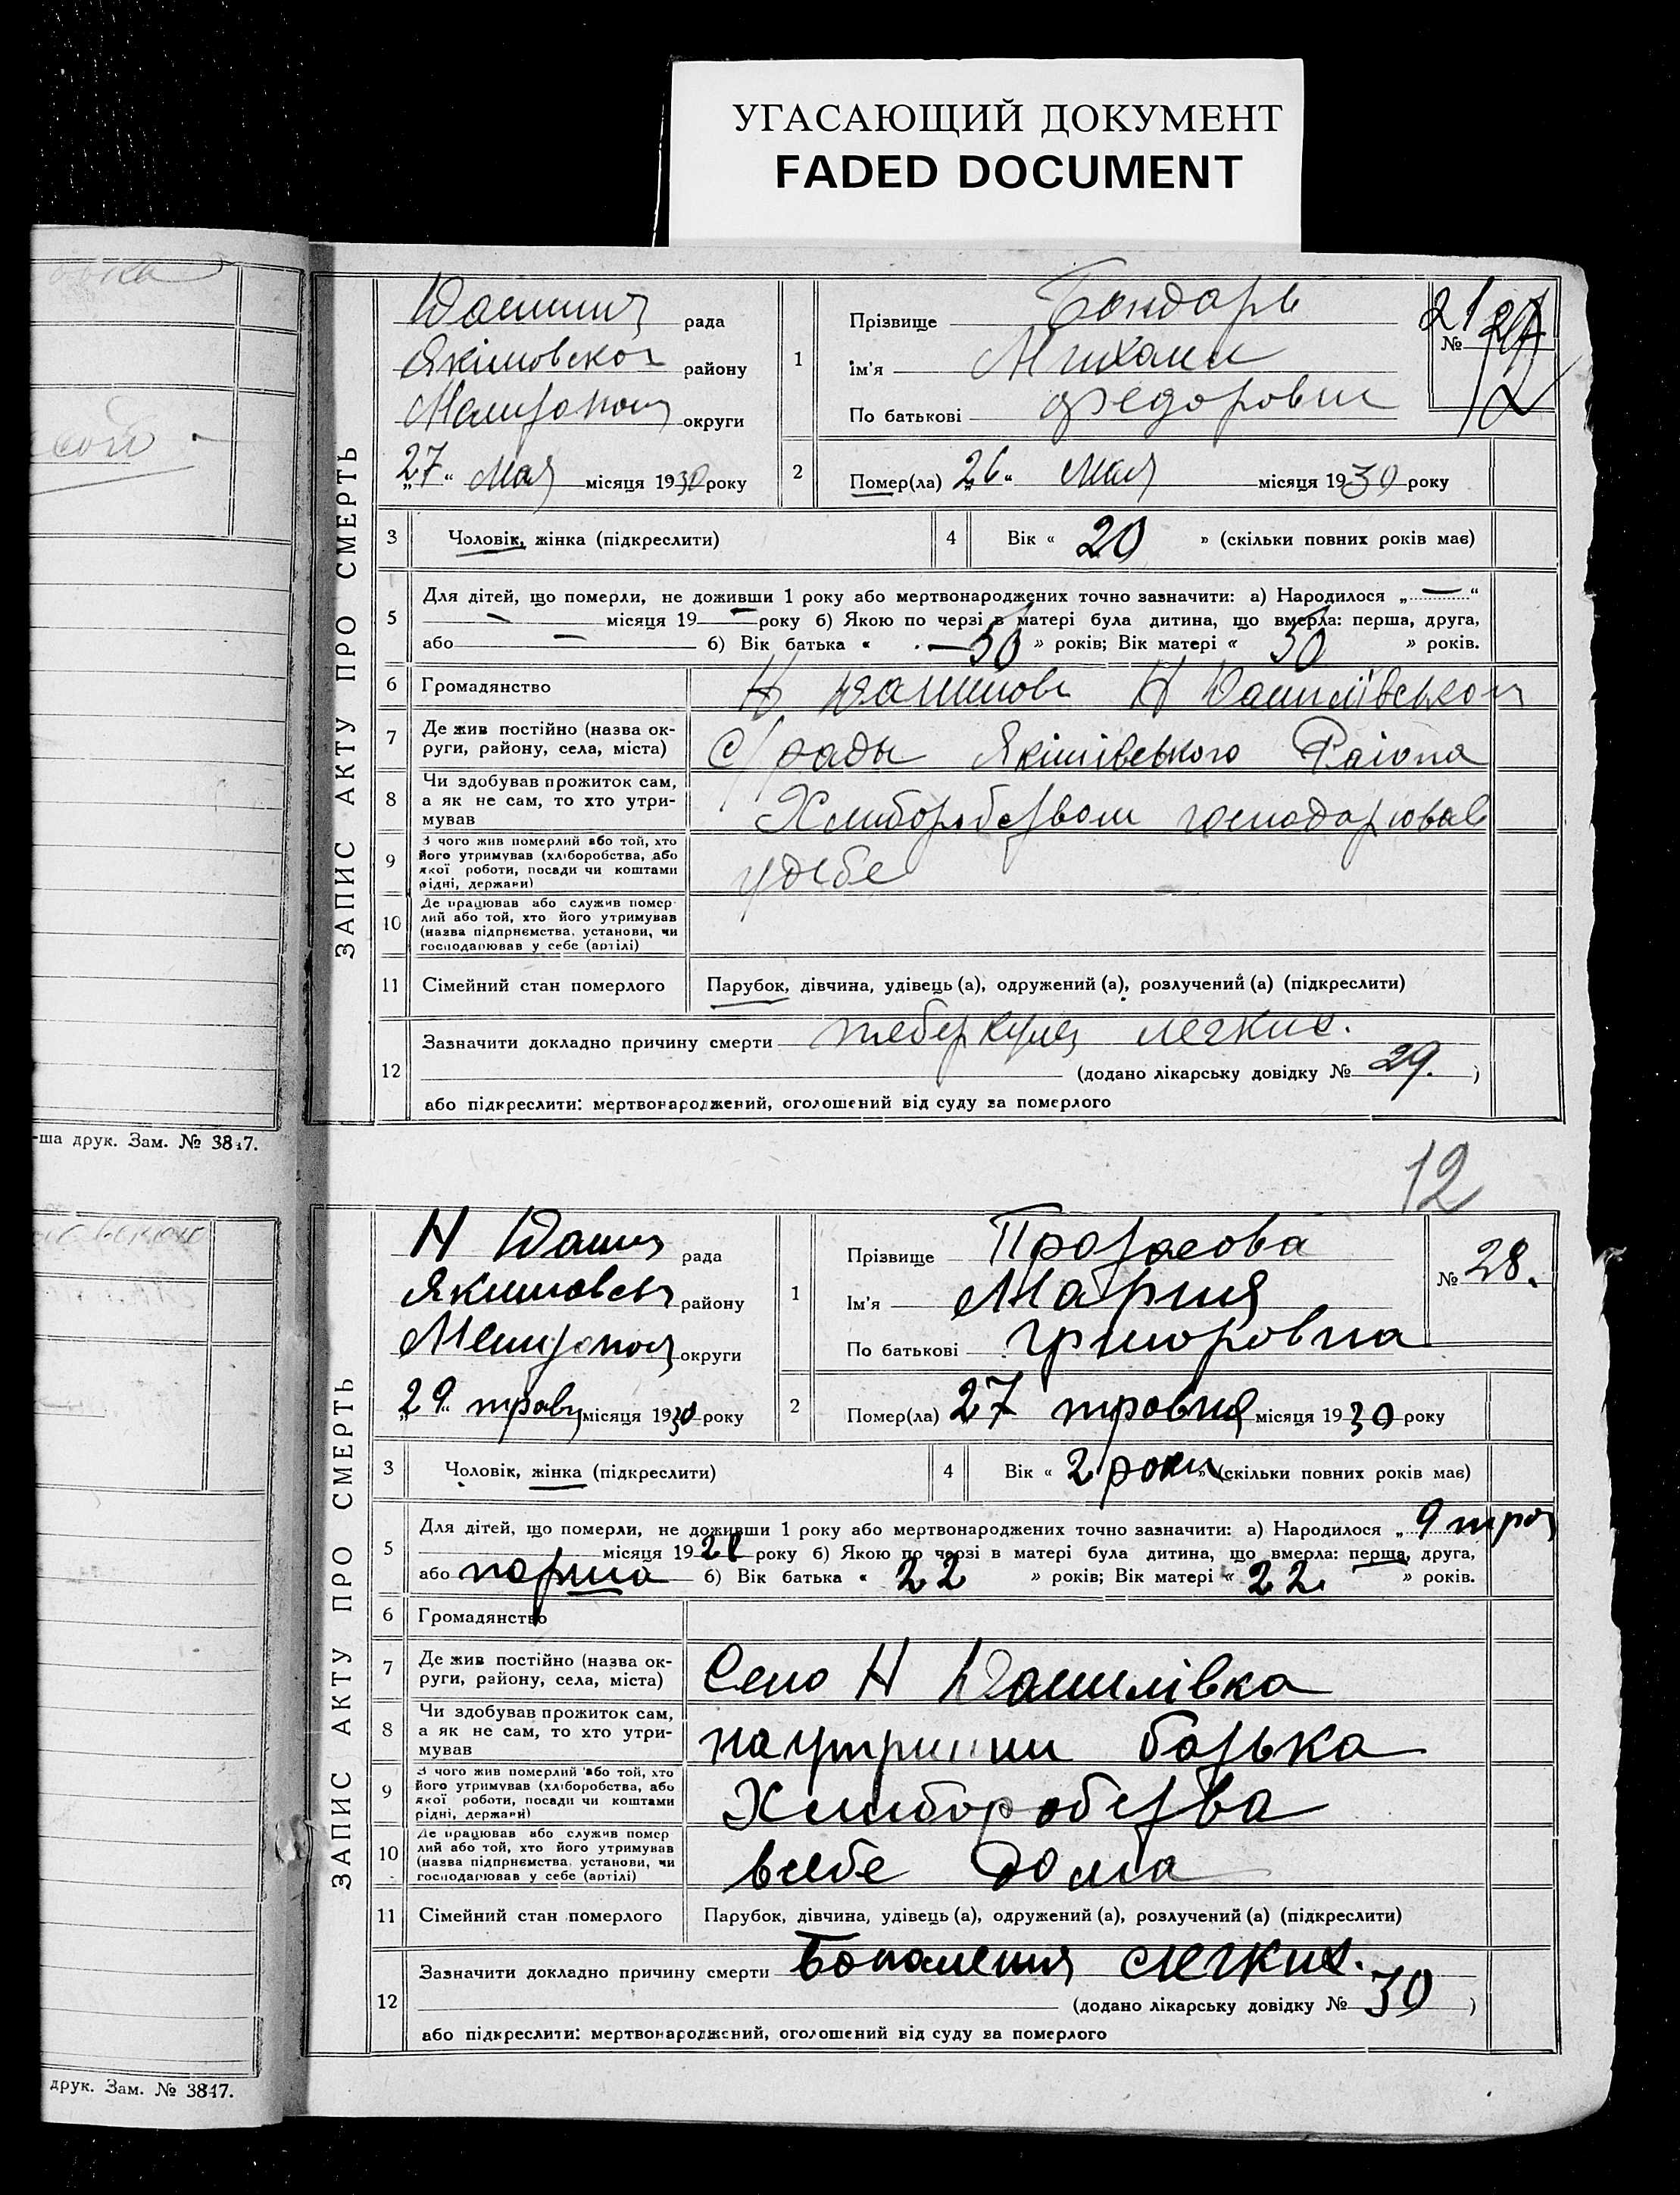 УГАСАЮЩИЙ ДОКУМЕНТ
FADED DOCUMENT
-ша друк. Зам. № 3847.
друк. Зам. № 3847.
ЗАПИС АКТУ ПРО СМЕРТЬ
рада
району
округи
„27“ мая місяця 1930 року
1
Прізвище Бондарь
Ім'я Михаил
По батькові Федорович
№
2
Помер(ла) „26“ мая місяця 1930 року
3
Чоловік, жінка (підкреслити)
4
Вік « 20 » (скільки повних років має)
5
Для дітей, що померли, не доживши 1 року або мертвонароджених точно зазначити: а) Народилося „ — “
— місяця 19 — року б) Якою по черзі в матері була дитина, що вмерла: перша, друга,
або — б) Вік батька « — 50 » років; Вік матері « 50 » років.
6
Громадянство
7
Де жив постійно (назва ок-
руги, району, села, міста)
С/рады Якімівського Раіона
8
Чи здобував прожиток сам,
а як не сам, то хто утри-
мував
господарював
9
З чого жив померлий або той, хто
його утримував (хліборобства, або
якої роботи, посади чи коштами
рідні, держави)
усебе
10
Де працював або служив помер-
лий або той, хто його утримував
(назва підприємства, установи, чи
господарював у себе (артілі)
11
Сімейний стан померлого
Парубок, дівчина, удівець (а), одружений (а), розлучений (а) (підкреслити)
12
Зазначити докладно причину смерти легких.
(додано лікарську довідку № 29. )
або підкреслити: мертвонароджений, оголошений від суду за померлого
12
ЗАПИС АКТУ ПРО СМЕРТЬ
рада
району
округи
„29“ місяця 1930 року
1
Прізвище
Ім'я Мария
По батькові Григоровна
№ 28.
2
Помер(ла) 27 травня місяця 1930 року
3
Чоловік, жінка (підкреслити)
4
Вік « 2 роки » (скільки повних років має)
5
Для дітей, що померли, не доживши 1 року або мертвонароджених точно зазначити: а) Народилося „ 9 трав
місяця 1928 року б) Якою по черзі в матері була дитина, що вмерла: перша, друга,
або б) Вік батька « 22 » років; Вік матері « 22. » років.
6
Громадянство
7
Де жив постійно (назва ок-
руги, району, села, міста)
Село Н Данилівка
8
Чи здобував прожиток сам,
а як не сам, то хто утри-
мував
батька
9
З чого жив померлий або той, хто
його утримував (хліборобства, або
якої роботи, посади чи коштами
рідні, держави)
10
Де працював або служив помер-
лий або той, хто його утримував
(назва підприємства, установи, чи
господарював у себе (артілі)
всебе дома
11
Сімейний стан померлого
Парубок, дівчина, удівець (а), одружений (а), розлучений (а) (підкреслити)
12
Зазначити докладно причину смерти легких.
(додано лікарську довідку № 30 )
або підкреслити: мертвонароджений, оголошений від суду за померлого